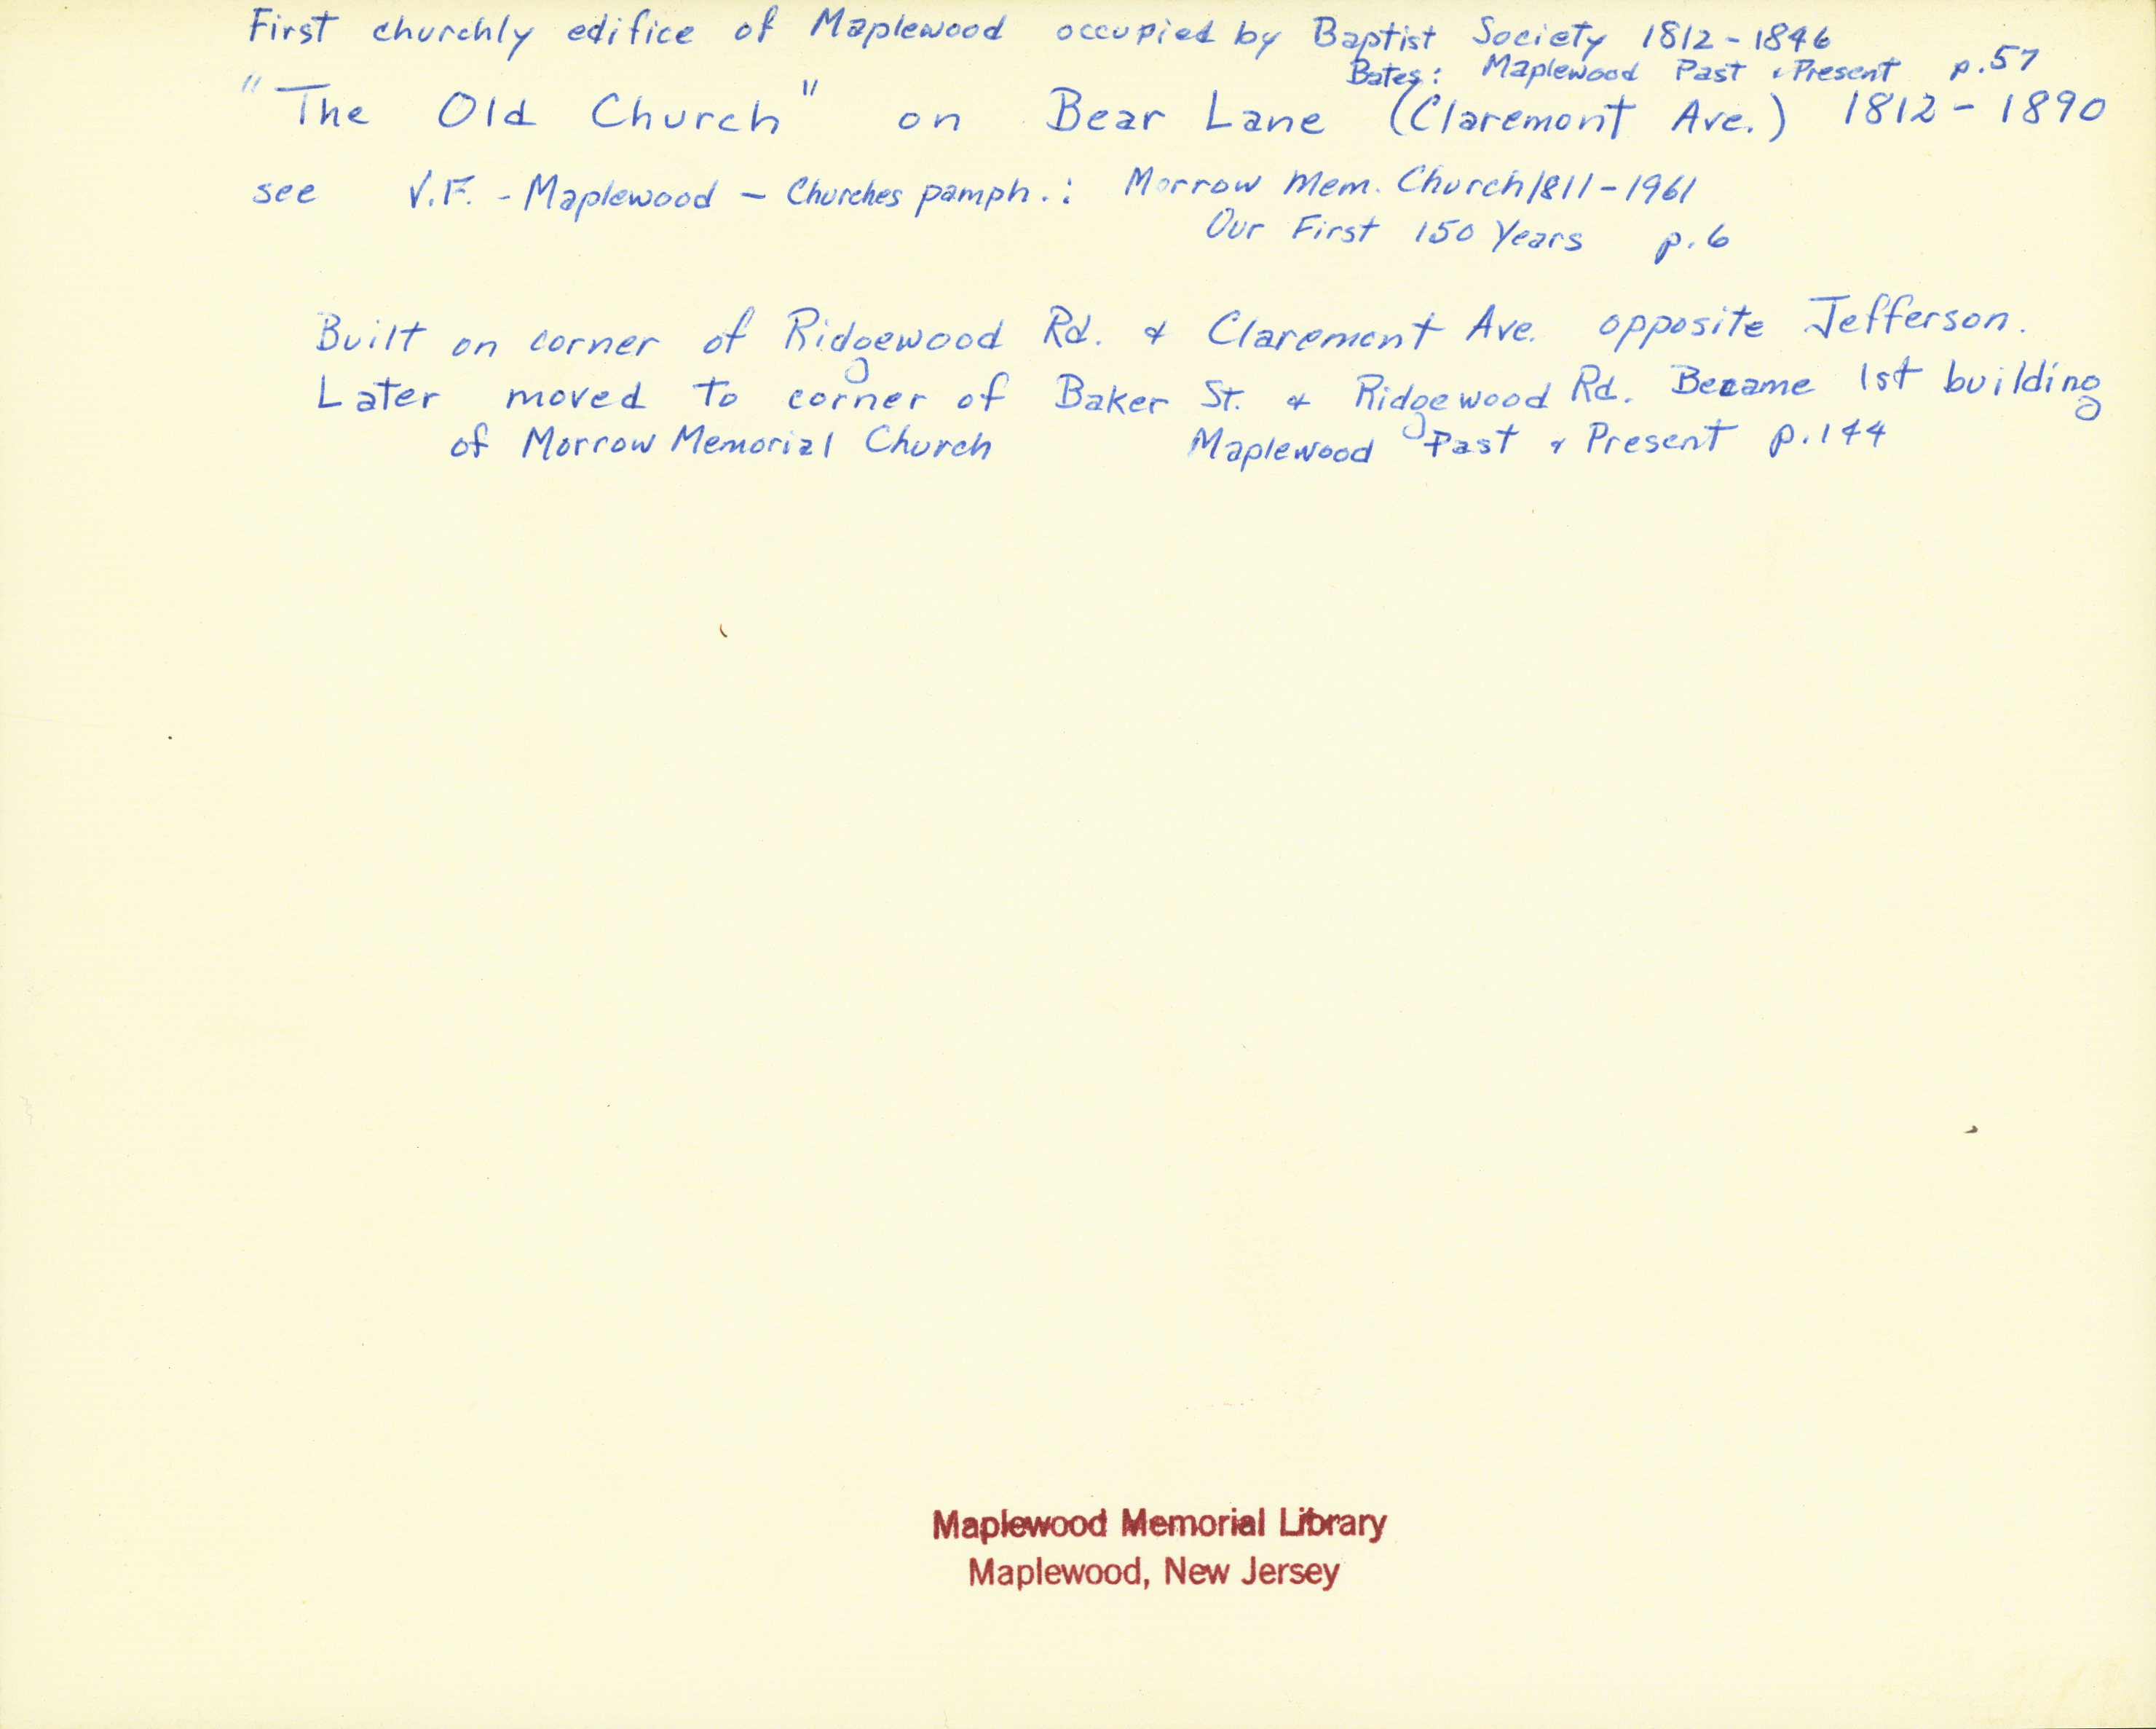 First churchly edifice of Maplewood occupied by Baptist Society 1812-1846
Bates: Maplewood Past & Present p.57
"The Old Church" on Bear Lane (Claremont Ave.) 1812-1890
see V.F. - Maplewood - Churches pamph.: Morrow Mem. Church 1811-1961
Our First 150 Years p.6
Built on corner of Ridgewood Rd. & Claremont Ave. opposite Jefferson.
Later moved to corner of Baker St. & Ridgewood Rd. Became 1st building
of Morrow Memorial Church Maplewood Past & Present p.144
Maplewood Memorial Library
Maplewood, New Jersey